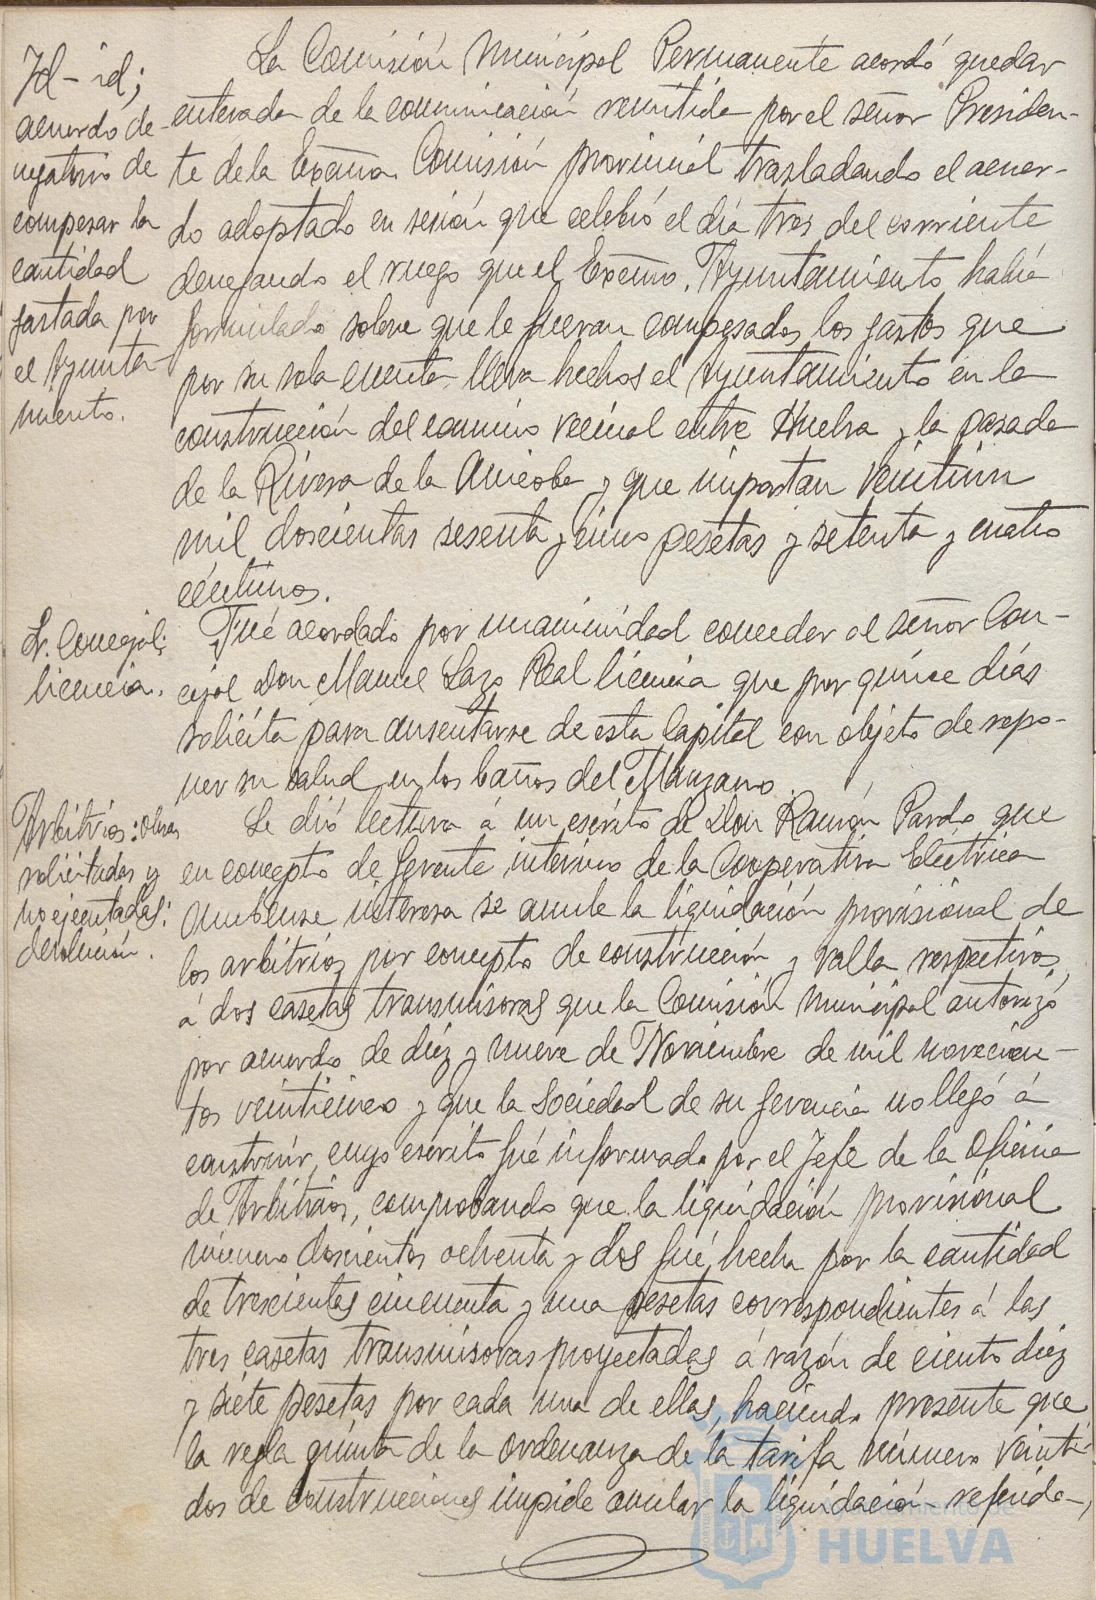 Id-id;
acuerdo de-
negatorio de
compesar la
cantidad
gastada por
el Ayunta-
miento.
La Comisión Municipal Permanente acordó quedar
enterada de la comunicación remitida por el señor Presiden-
te de la Excma. Comisión provincial trasladando el acuer-
do adoptado en sesión que celebró el día tres del corriente
denegando el ruego que el Excmo. Ayuntamiento había
formulado sobre que le fueran compesados los gastos que
por su sola cuenta lleva hechos el Ayuntamiento en la
construcción del camino vecinal entre Huelva y la pasada
de la Rivera de la Anicoba y que importan veintiun
mil doscientas sesenta y cinco pesetas y setenta y cuatro
céntimos.
Sr. Concejal;
licencia.
Fué acordado por unanimidad conceder al señor Con-
cejal Don Manuel Lazo Real licencia que por quince días
solicita para ausentarse de esta Capital con objeto de repo-
ner su salud en los baños del Manzano.
Arbitrios: obras
solicitadas y
no ejecutadas:
devolución.
Se dió lectura á un escrito de Don Ramón Pardo que
en concepto de Gerente interino de la Cooperativa Eléctrica
Onubense interesa se anule la liquidación provisional de
los arbitrios por concepto de construcción y valla respectivos
á dos casetas transmisoras que la Comisión Municipal autorizó
por acuerdo de diez y nueve de Noviembre de mil novecien-
tos veinticinco y que la Sociedad de su Gerencia no llegó á
construir, cuyo escrito fué informado por el Jefe de la Oficina
de Arbitrios, comprobando que la liquidación provisional
número doscientos ochenta y dos fué hecha por la cantidad
de trescientas cincuenta y una pesetas correspondientes á las
tres casetas transmisoras proyectadas á razón de ciento diez
y siete pesetas por cada una de ellas, haciendo presente que
la regla quinta de la Ordenanza de la tarifa número veinti-
dos de construcciones impide anular la liquidación referida,
Ayuntamiento de
HUELVA